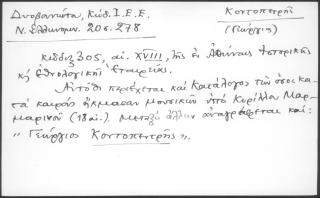 Δυοβουνιώτη, Κώδ. Ι.Ε.Ε.
Κοντοπετρῆς
Ν. Ἑλληνομν. 20 σ. 278
(Γεώργιος)
Κώδιξ 305, αἰ. XVIII, τῆς ἐν Ἀθήναις Ἱστορικῆς
κ Ἐθνολογικῆς Ἑταιρείας.
Αὐτόθι περιέχεται καὶ Κατάλογος τῶν ὅσοι κα-
τὰ καιροὺς ἤκμασαν μουσικῶν ὑπὸ Κυρίλλου Μαρ-
μαρινοῦ (18 αἰ.). Μεταξὺ ἄλλων ἀναγράφεται καί:
"Γεώργιος Κοντοπετρῆς".